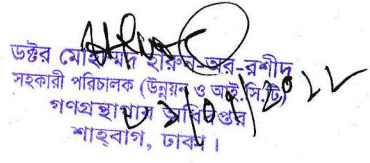 ডক্টর মোহাম্মদ হারুন-অর-রশীদ
সহকারী পরিচালক (উন্নয়ন ও আই.সি.টি)
গণগ্রন্থাগার অধিদপ্তর
শাহ্‌বাগ, ঢাকা।